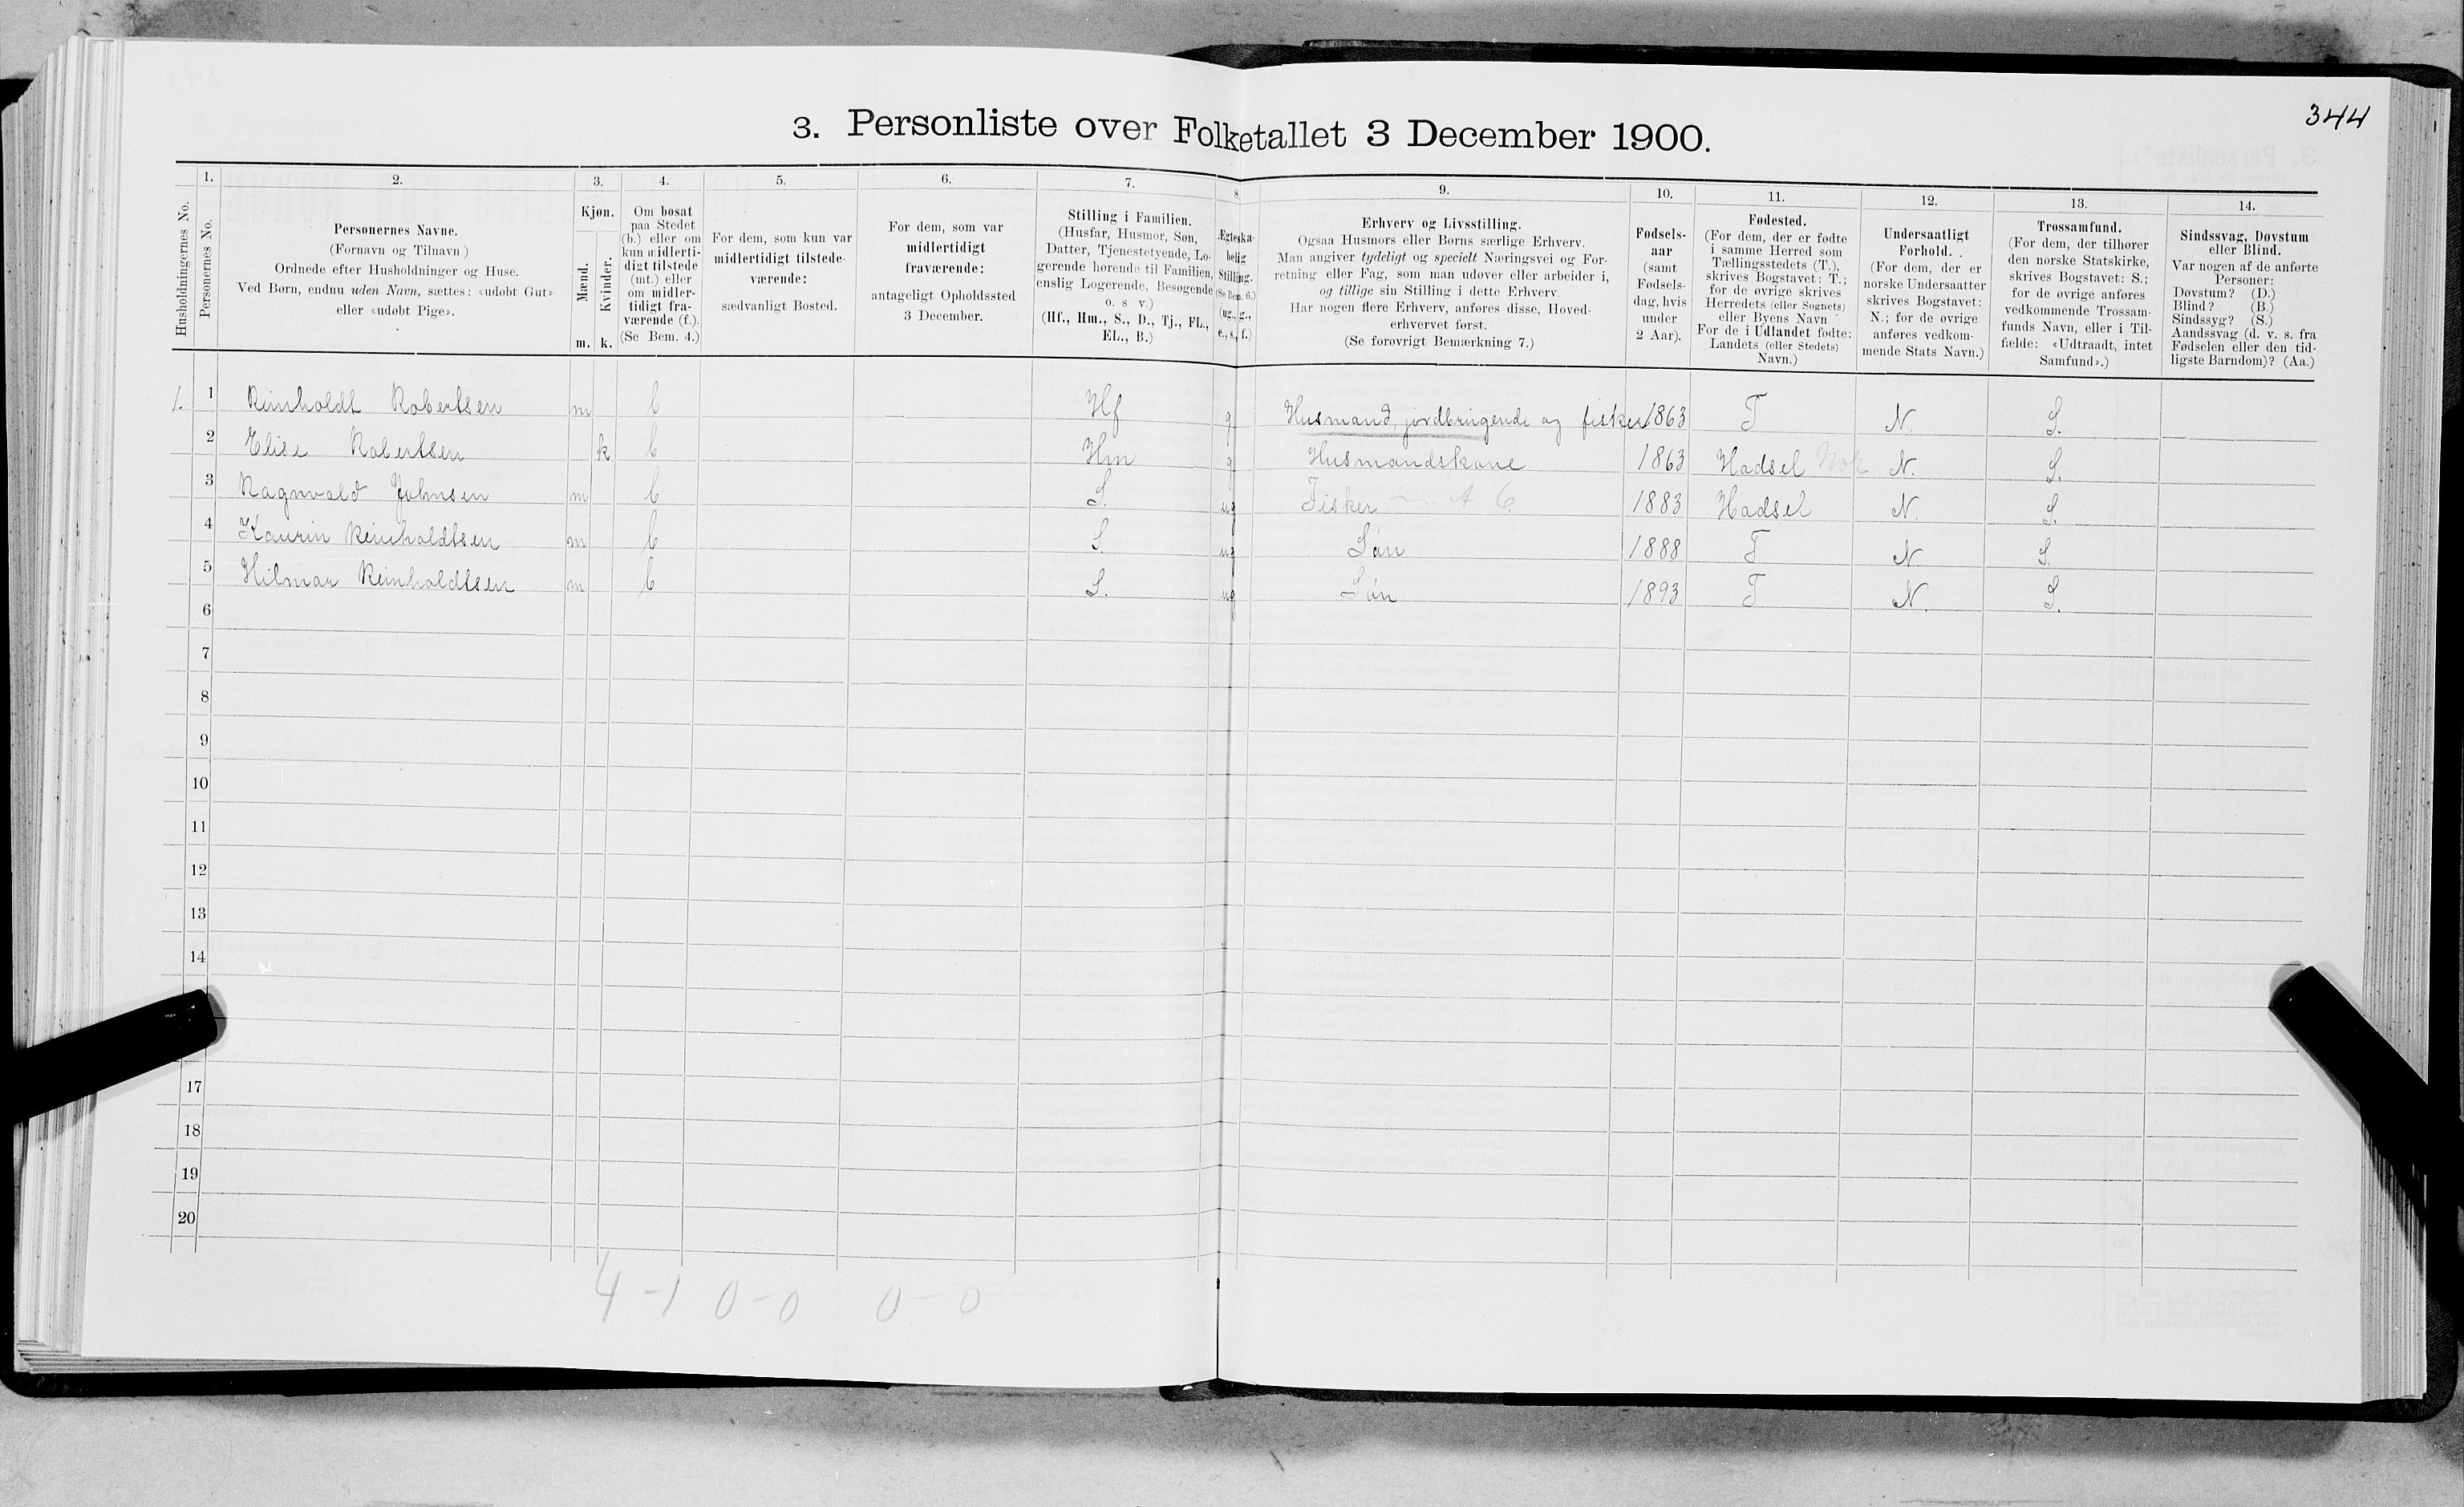 344
3. Personliste over Folketallet 3 December 1900.
Husholdningernes No.
1.
Personernes No.
2.
Personernes Navne.
(Fornavn og Tilnavn)
Ordnede efter Husholdninger og Huse.
Ved Børn, endnu uden Navn, sættes: «udøbt Gut»
eller «udøbt Pige».
3.
Kjøn.
Mænd.
Kvinder.
m. k.
4.
Om bosat
paa Stedet
(b.) eller om
kun midlerti-
digt tilstede
(mt.) eller
om midler-
tidigt fra-
værende (f.).
(Se Bem. 4.)
5.
For dem, som kun var
midlertidigt tilstede-
værende:
sædvanligt Bosted.
6.
For dem, som var
midlertidigt
fraværende:
antageligt Opholdssted
3 December.
7.
Stilling i Familien.
(Husfar, Husmor, Søn,
Datter, Tjenestetyende, Lo-
gerende hørende til Familien,
enslig Logerende, Besøgende
o. s v.)
(Hf., Hm., S., D., Tj., FL.,
EL., B.)
8.
Ægteska-
belig
Stilling.
(Se Bem. 6.)
(ug., g.,
e., s., f.)
9.
Erhverv og Livsstilling.
Ogsaa Husmors eller Børns særlige Erhverv.
Man angiver tydeligt og specielt Næringsvei og For-
retning eller Fag, som man udøver eller arbeider i,
og tillige sin Stilling i dette Erhverv.
Har nogen flere Erhverv, anføres disse, Hoved-
erhvervet først.
(Se forøvrigt Bemærkning 7.)
10.
Fødsels-
aar
(samt
Fødsels-
dag, hvis
under
2 Aar).
11.
Fødested.
(For dem, der er fødte
i samme Herred som
Tællingsstedets (T.),
skrives Bogstavet: T.;
for de øvrige skrives
Herredets (eller Sognets)
eller Byens Navn
For de i Udlandet fødte:
Landets (eller Stedets)
Navn.)
12.
Undersaatligt
Forhold.
(For dem, der er
norske Undersaatter
skrives Bogstavet:
N.; for de øvrige
anføres vedkom-
mende Stats Navn.)
13.
Trossamfund.
(For dem, der tilhører
den norske Statskirke,
skrives Bogstavet: S.;
for de øvrige anføres
vedkommende Trossam-
funds Navn, eller i Til-
fælde: «Udtraadt, intet
Samfund».)
14.
Sindssvag, Døvstum
eller Blind.
Var nogen af de anførte
Personer:
Døvstum? (D.)
Blind? (B.)
Sindssyg? (S.)
Aandssvag (d. v. s. fra
Fødselen eller den tid-
ligste Barndom)? (Aa.)
1. 1 Reinholdt Robertsen m b Hf g Husmand, jordbrugende og fisker 1863 T N. S.
2 Elise Robertsen k b Hm g Husmandskone 1863 Hadsel N. S.
3 Ragnvald Johnsen m b S. ug Fisker 1883 Hadsel N. S.
4 Kaurin Reinholdtsen m b S ug Søn 1888 T N. S.
5 Hilmar Reinholdtsen m b S. ug Søn 1893 T N. S.
6
7
8
9
10
11
12
13
14
17
18
19
20
4 - 1 0 - 0 0 - 0